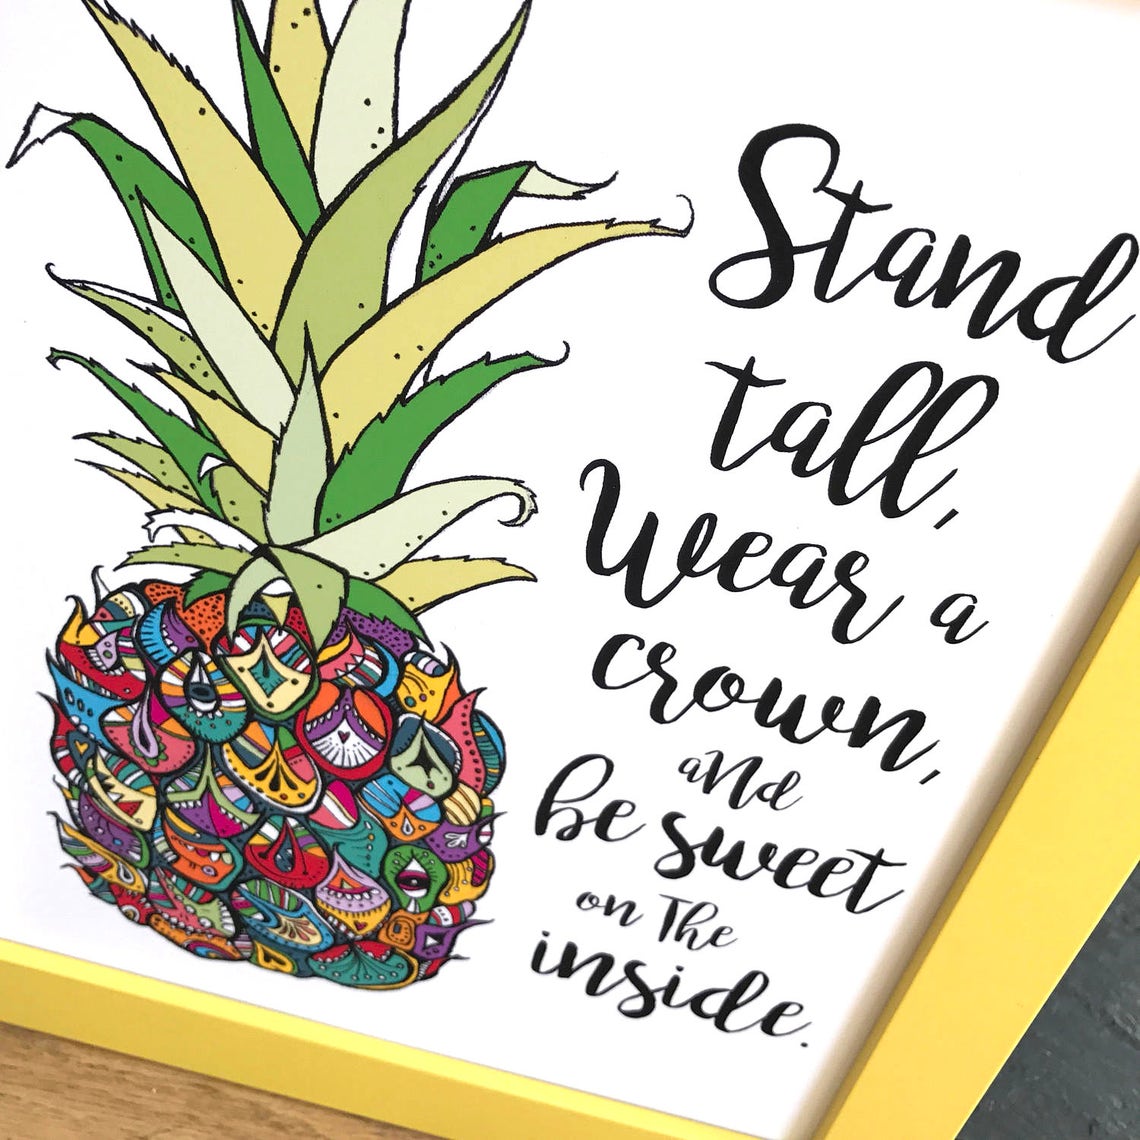 Stand
tall,
Wear a
crown,
aNd
be sweet
on The
inside.